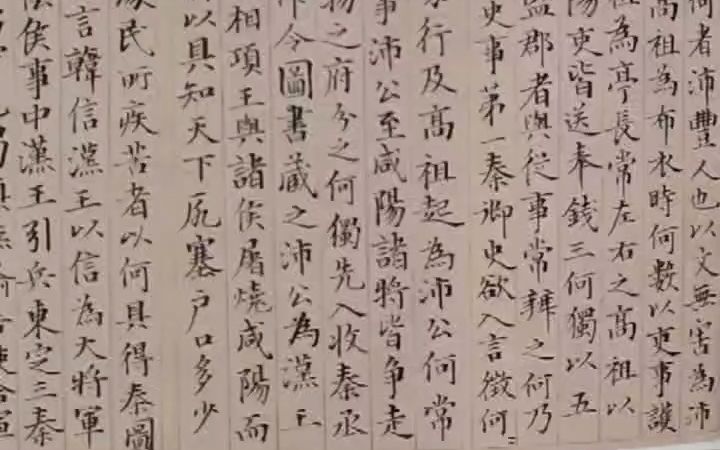 何者沛豐人也以文無害為沛
高祖為布衣時何數以吏事護
祖為亭長常左右之高祖以
陽吏皆送奉錢三何獨以五
監郡者與從事常辨之何乃
史事第一秦御史欲入言徵何〻
行及高祖起為沛公何常
事沛公至咸陽諸將皆爭走
物之府分之何獨先入收秦丞
令圖書藏之沛公為漢王
相項王與諸侯屠燒咸陽而
以具知天下阨塞戶口多少
民所疾苦者以何具得秦圖
言韓信漢王以信為大將軍
侯事中漢王引兵東定三秦